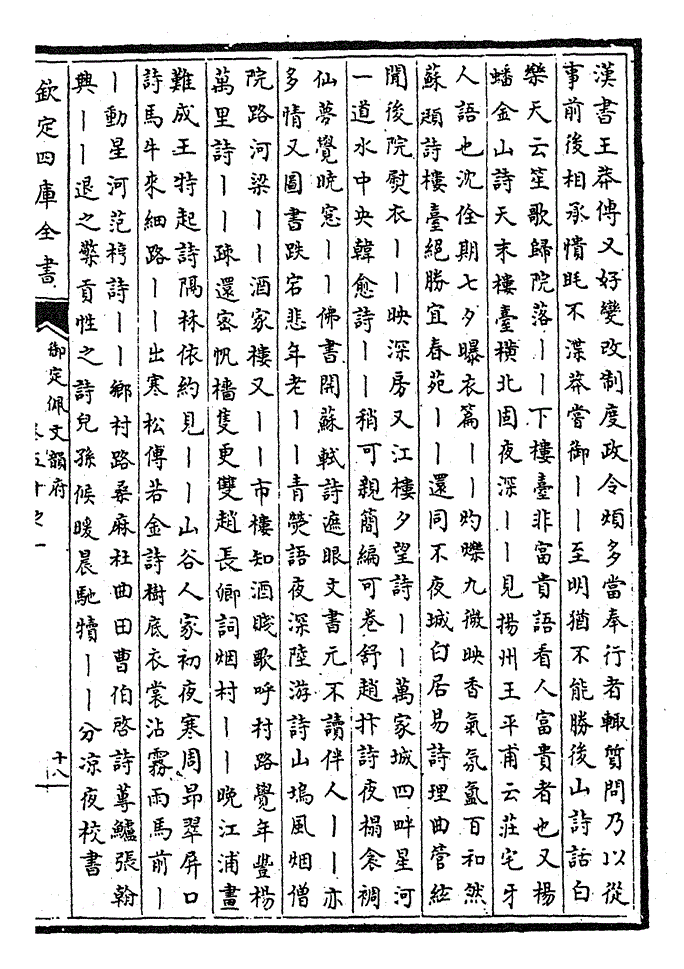 漢書王莽傳又好變改制度政令煩多當奉行者輒質問乃以從
事前後相承憒眊不渫莽常御丨丨至明猶不能勝後山詩話白
樂天云笙歌歸院落丨丨下樓臺非富貴語看人富貴者也又楊
蟠金山詩天末樓臺橫北固夜深丨丨見揚州王平甫云莊宅牙
人語也沈佺期七夕曝衣篇丨丨灼爍九微映香氣氛氳百和然
蘇頲詩樓臺絕勝宜春苑丨丨還同不夜城白居易詩理曲管絃
聞後院熨衣丨丨映深房又江樓夕望詩丨丨萬家城四畔星河
一道水中央韓愈詩丨丨稍可親簡編可卷舒趙抃詩夜榻衾裯
仙夢覺曉窓丨丨佛書開蘇軾詩遮眼文書元不讀伴人丨丨亦
多情又圖書跌宕悲年老丨丨青熒語夜深陸游詩山塢風烟僧
院路河梁丨丨酒家樓又丨丨市樓知酒賤歌呼村路覺年豐楊
萬里詩丨丨疎還密帆檣隻更雙趙長卿詞烟村丨丨晚江浦畫
難成王特起詩隔林依約見丨丨山谷人家初夜寒周昂翠屏口
詩馬牛來細路丨丨出寒松傅若金詩樹底衣裳沾霧雨馬前丨
丨動星河范梈詩丨丨鄉村路桑麻杜曲田曹伯啓詩蓴鱸張翰
興丨丨退之檠貢性之詩兒孫候暖晨馳犢丨丨分凉夜校書
欽定四庫全書
御定佩文韻府
卷五十之一
十八